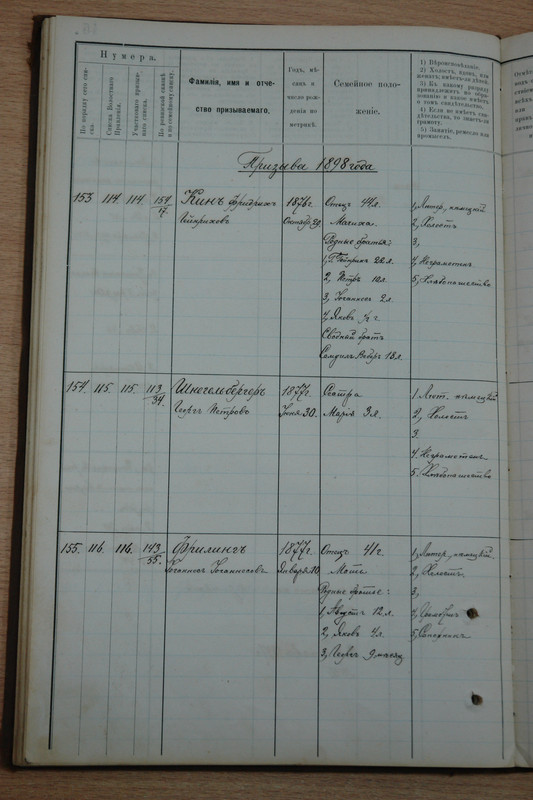 Нумера.
По порядку сего списка
Списка Волостнаго Правленія.
Участковаго призывнаго списка.
По ревизской сказкѣ и по семейному списку.
Фамилія, имя и отчество призываемаго.
Годъ, мѣсяцъ и число рожденія по метрикѣ.
Семейное положеніе.
1) Вѣроисповѣданіе.
2) Холостъ, вдовъ, или женатъ; имѣетъ-ли дѣтей.
3) Къ какому разряду принадлежитъ по образованію и какое имѣетъ о томъ свидѣтельство.
4) Если не имѣетъ свидѣтельства, то знаетъ-ли грамоту.
5) Занятіе, ремесло или промыселъ.
Призыва 1898 года
153 114 114 154/17. Кинъ Фридрихъ 1876 г. Отецъ 44 л. 1, Лютер. нѣмецкій
Гейнриховъ Октября 29. Мачиха. 2, Холостъ
Родные братья: 3,
1, Гейнрихъ 22 л. 4, Неграмотенъ
2, Петръ 10 л. 5, Хлѣбопашество
3, Іоганнесъ 2 л.
4, Яковъ ½ г
Сводный братъ
Самуилъ Веберъ 18 л.
154. 115. 115. 113/34. Шнегельбергеръ 1877 г. Сестра 1 Лют. нѣмецкій
Георгъ Петровъ Іюня 30. Марія 3 л. 2, Холостъ
3.
4. Неграмотенъ
5. Хлѣбопашество
155. 116. 116. 143/55. Фрилингъ 1877 г. Отецъ 41 г. 1, Лютер. нѣмецкій
Іоганнесъ Іоганнесовъ Января 10. Мать 2, Холостъ.
Родные братья: 3,
1, Августъ 12 л. 4,
2, Яковъ 4 л. 5,
3, Георгъ 9 месяц